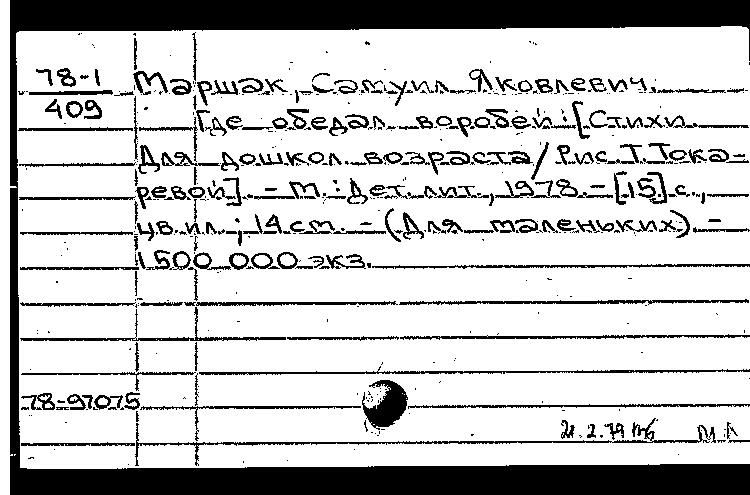 78-1
409
Маршак, Самуил Яковлевич.
Где обедал воробей: [Стихи.
Для дошкол. возраста / Рис. Т. Тока-
ревой]. - М.: Дет. лит., 1978. - [15] с.,
цв. ил.; 14 см. - (Для маленьких). -
1 500 000 экз.
78-97075
21.2.79 МЛ